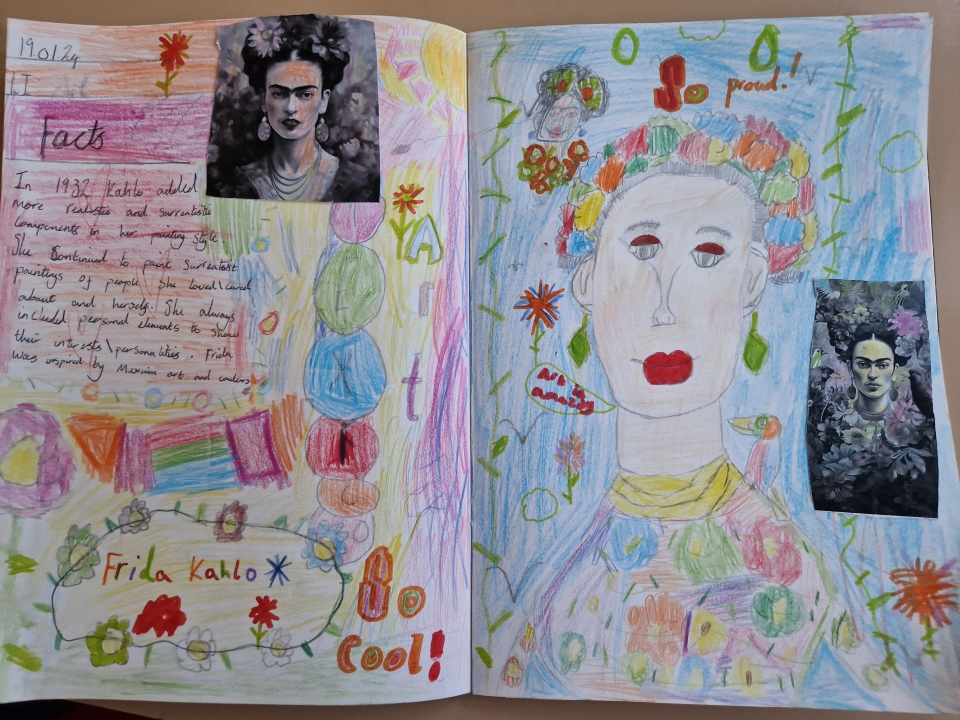 19.01.24
LI
Facts
In 1932 Kahlo added
more realistic and surrealistic
components in her painting style.
She Continued to paint surrealist
paintings of people she loved\cared
about and herself. She always
included personal elements to show
their interests\personalities. Frida
was inspired by Mexican art and colors
Art
Frida Kahlo
So
Cool!
So proud!
Art is
amazing